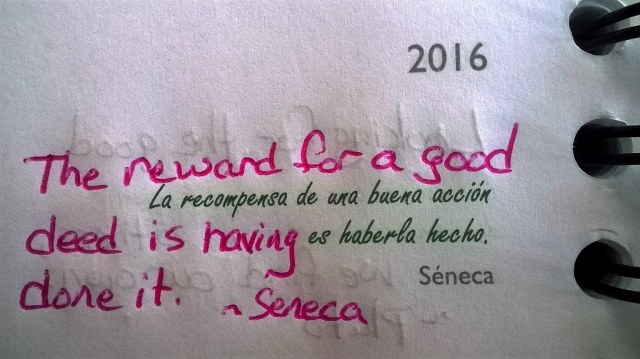 2016
The reward for a good
La recompensa de una buena acción
deed is having
es haberla hecho.
Séneca
done it. ~ Seneca